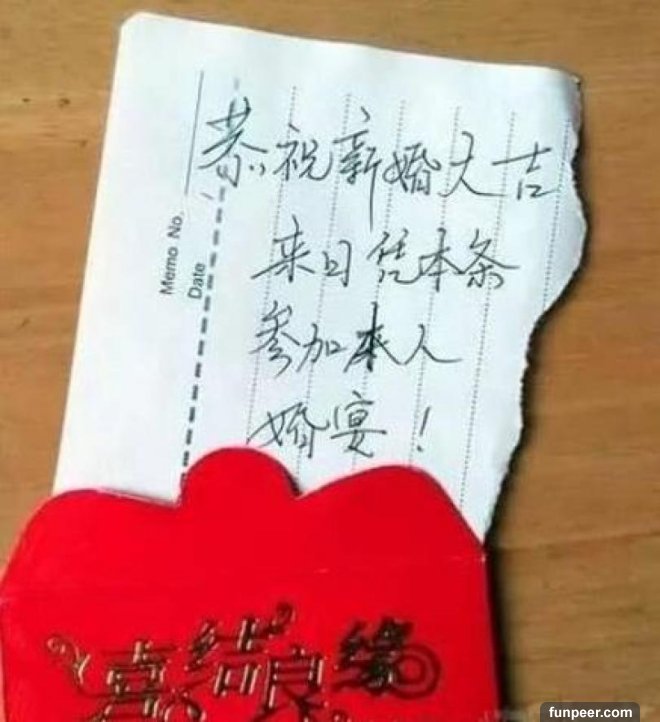 恭祝新婚大吉
来日凭本条
参加本人
婚宴！
Memo No.
Date
喜结良缘
funpeer.com